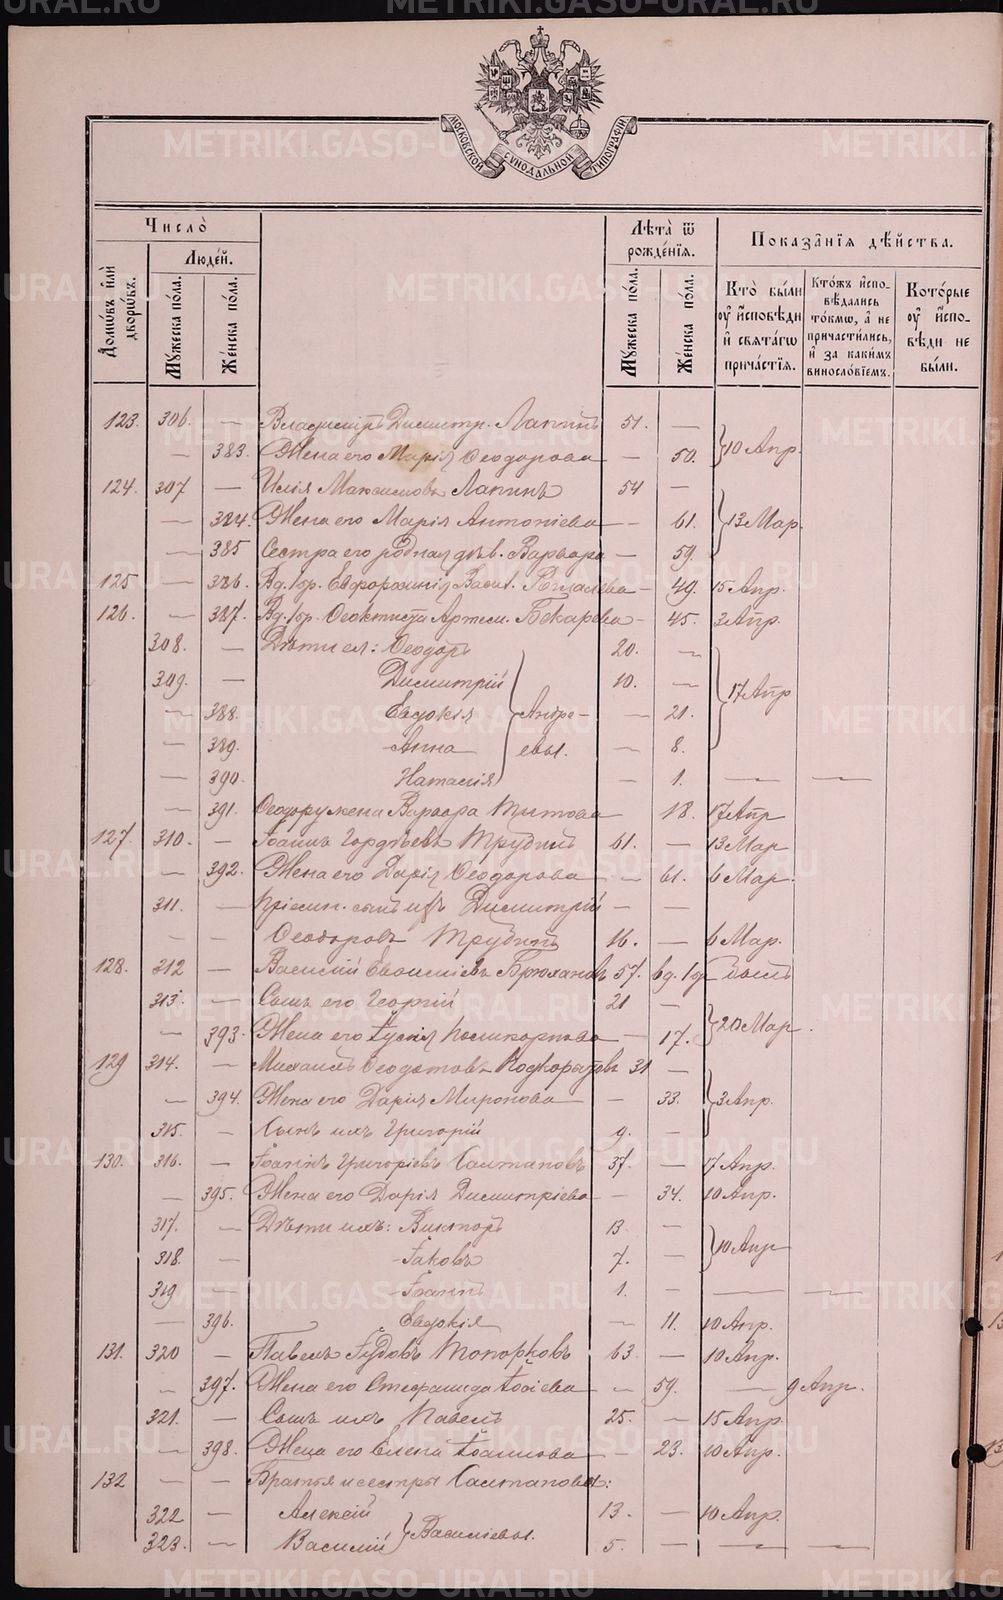 METRIKI.GASO-URAL.RU
МОСКОВСКОЙ СѴНОДАЛЬНОЙ ТИПОГРАФІИ
Число̀
Людей.
Домѡвъ и҆лѝ дворѡвъ.
Мꙋжеска по́ла.
Же́нска по́ла.
Лѣ̑та ѿ рожде́нїѧ.
Мꙋжеска по́ла.
Же́нска по́ла.
Показа̑нїѧ дѣ́йства.
Кто̀ бы́ли ᲂу҆ и҆сповѣ́ди и҆ свята́гѡ причⷭ҇тїѧ.
Кто́жъ и҆спо-вѣ́дались то́кмѡ, а҆ не причасти́лись, и҆ за каки́мъ винослові́емъ.
Кото́рые ᲂу҆ и҆спо-вѣ́ди не бы́ли.
123. 306. — Владиміръ Димитр. Лапинъ 51. —
— 383. Жена его Марія Ѳеодорова — 50. } 10 Апр.
124. 307 — Илія Максимовъ Лапинъ 54 —
— 384. Жена его Марія Антоніева — 61. } 13 Мар.
— 385 Сестра его родная дѣв. Варвара — 59.
125 — 386. Вд. 1 бр. Евфросинія Васил. — 49. 15 Апр.
126. — 387. Вд. 1 бр. Ѳеоктиста Артем. Бекарева — 45. 3 Апр.
308. — Дѣти ея: Ѳеодоръ 20. —
309. — Димитрій 10. — } 17 Апр
— 388. Евдокія } Андре- — 21.
— 389. Анна евы. — 8.
— 390. Наталія — 1. — —
— 391. Ѳеодору жена Варвара Титова 18. 17 Апр
127. 310. — Іоаннъ Гордѣевъ Трубинъ 61. — 13 Мар
— 392. Жена его Дарія Ѳеодорова — 61. 6 Мар.
311. — Пріемн. сынъ ихъ Димитрій — —
— — Ѳеодоровъ Трубинъ 16. — 6 Мар.
128. 312 — Василій Евѳиміевъ Брюхановъ 57. вд. 1 бр.
313. — Сынъ его Георгій 21 —
— 393. Жена его — 17. } 20 Мар.
129 314. — Михаилъ Ѳеодотовъ Подкорытовъ 31 —
— 394. Жена его Дарія Миронова — 33. } 3 Апр.
315. — Сынъ ихъ Григорій 9. —
130. 316. — Іоаннъ Григоріевъ Салтановъ 37. — 17 Апр.
— 395. Жена его Дарія Димитріева — 34. 10 Апр.
317. — Дѣти ихъ: Викторъ 13. —
318. — Іаковъ 7. — } 10 Апр
319 — Іоаннъ 1. — —
— 396. Евдокія — 11. 10 Апр.
131. 320 — Павелъ Іудовъ Топорковъ 63. — 10 Апр.
— 397. Жена его Стефанида — 59. — 9 Апр.
321. — Сынъ ихъ Павелъ 25. — 15 Апр.
— 398. Жена его Елена Іоаннова — 23. 10 Апр.
132 — — Братья и сестры Салтановы:
322 — Алексій } Василіевы. 13. — 10 Апр.
323. — Василій 5. — — —